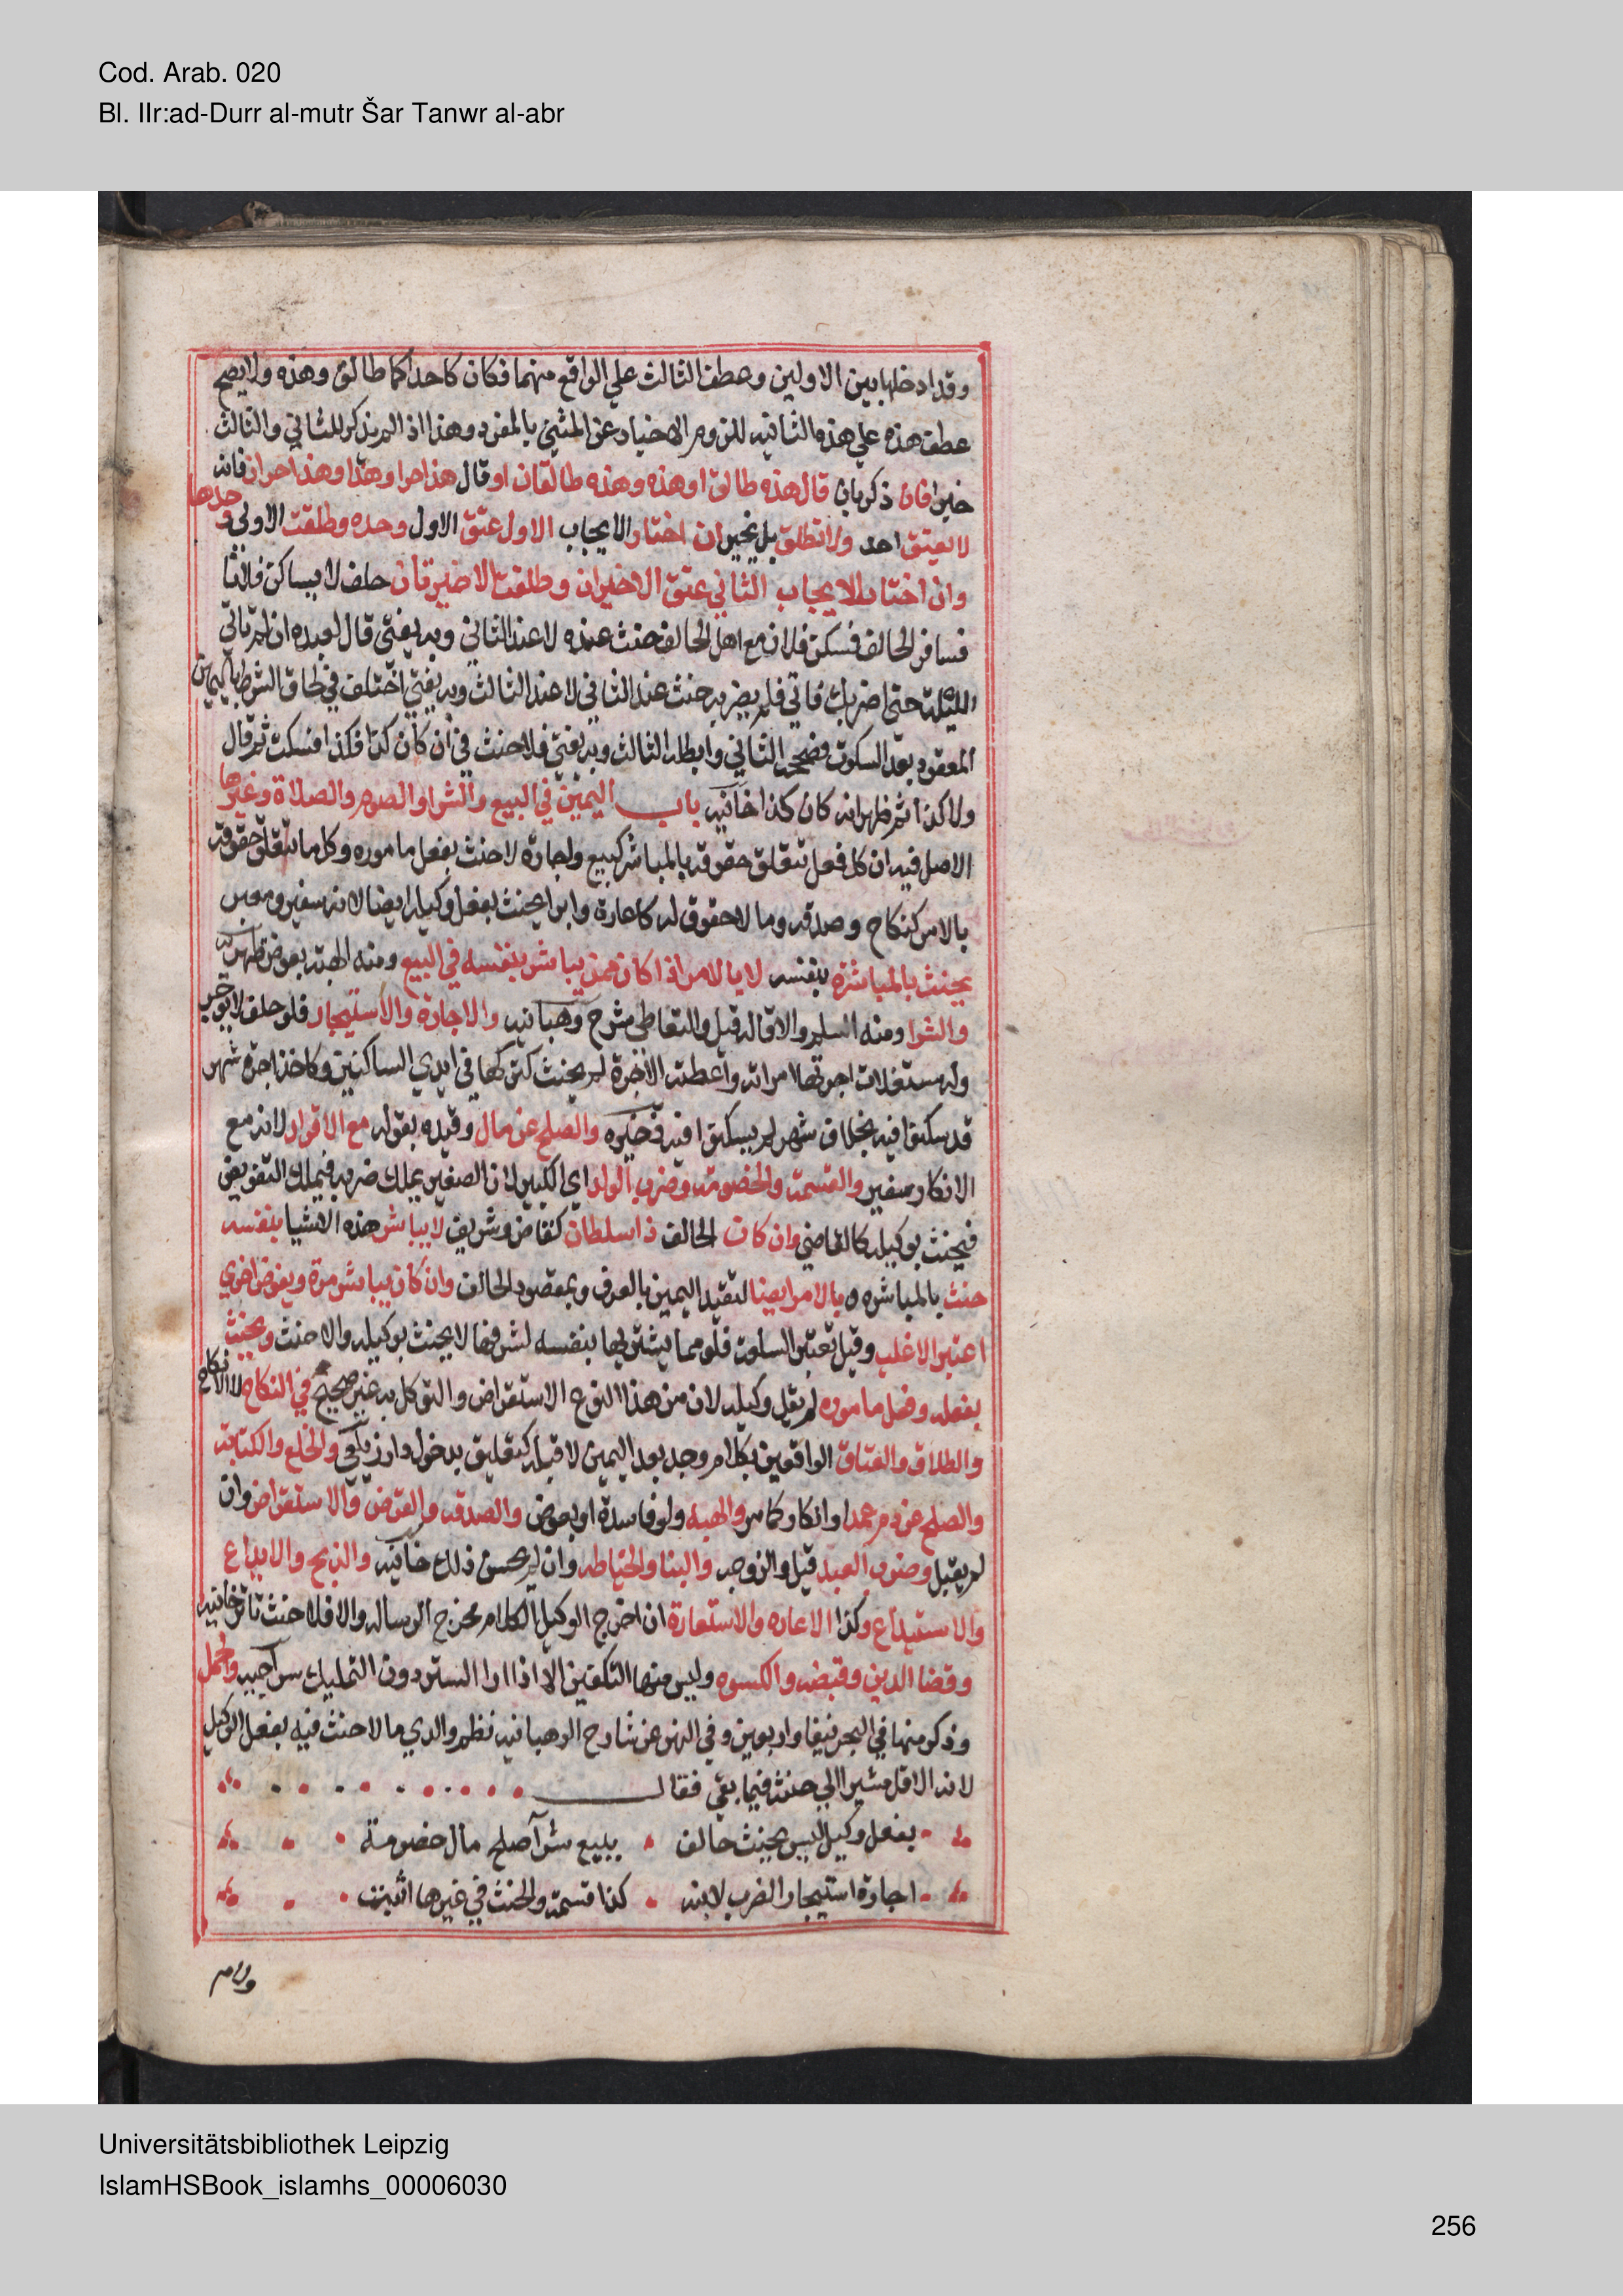 Cod. Arab. 020
Bl. IIr:ad-Durr al-mutr Šar Tanwr al-abr
وقد ادخلها بين الاولين وعطف الثالث علي الواقع منهما فكان كاحداكما طالق وهذه ولا يصح
عطف هذه علي هذه الثانيه للزوم الاخبار عن المثني بالمفرد وهذا اذا لم يذكر للثاني والثالث
خبرا فان ذكر بان قال هذه طالق او هذه وهذه طالقان او قال هذا حر او هذا وهذا حران فانه
لا يعتق احد ولا تطلق بل يخير ان اختار الايجاب الاول عتق الاول وحده وطلقت الاولي وحدها
وان اختار الايجاب الثاني عتق الاخيران وطلقت الاخيرتان حلف لا يساكن فلانا
فسافر الحالف فسكن فلان مع اهل الحالف حنث عنده لا عند الثاني وبه يفتي قال لعبده ان لم تاتي
الليلة حتي اضربك فاتي فلم يضربه حنث عند الثاني لا عند الثالث وبه يفتي اختلف في لحاق الشرط باليمين
المعقود بعد السكوت فصححه الثاني وابطله الثالث وبه يفتي فلا حنث في ان كان كذا فكذا فسكت ثم قال
ولا كذا ثم ظهر انه كان كذا خانيه باب اليمين في البيع والشرا والصوم والصلاة وغيرها
الاصل فيه ان كل فعل تتعلق حقوقه بالمباشر كبيع واجارة لا حنث بفعل ماموره وكل ما تتعلق حقوقه
بالامر كنكاح وصدقه وما لا حقوق له كاعارة وابرا يحنث بفعل وكيله ايضا لانه سفير ومعبر
يحنث بالمباشرة بنفسه لا بالامر اذا كان ممن يباشر بنفسه في البيع ومنه الهبة بعوض ظهيرية
والشرا ومنه السلم والاقاله قيل والتعاطي شرح وهبانيه والاجارة والاستيجار فلو حلف لا يوجر
وله مستغلات اجرتها امراته واعطته الاجرة لم يحنث كتركها في ايدي الساكنين وكاخذ اجرة شهر
قد سكنوا فيه بخلاف شهر لم يسكنوا فيه ذخيره والصلح عن مال وقيده بقوله مع الاقرار لانه مع
الانكار سفير والقسمة والخصومة وضرب الولد اي الكبير لان الصغير يملك ضربه فيملك التفويض
فيحنث بوكيله كالقاضي وان كان الحالف ذا سلطان كقاض وشريف لا يباشر هذه الاشيا بنفسه
حنث بالمباشره وبالامر ايضا لتقيد اليمين بالعرف وبمقصود الحالف وان كان يباشر مرة ويفوض اخري
اعتبر الاغلب وقيل تعتبر السلعة فلو مما يشتريها بنفسه لشرفها لا يحنث بوكيله والا حنث ويحنث
بفعله وفعل ماموره لم يقل وكيله لان من هذا النوع الاستقراض والتوكل به غير صحيح في النكاح لا الانكاح
والطلاق والعتاق الواقعين بكلام وجد بعد اليمين لا قبله كتعليق بدخول دار زيلعي والخلع والكتابة
والصلح عن دم عمد او انكار كما مر والهبه ولو فاسدة او بعوض والصدقه والقرض والاستقراض وان
لم يقبل وضرب العبد قيل والزوجه والبنا والخياطه وان لم يحسن ذلك خانيه والذبح والايداع
والاستيداع وكذا الاعاره والاستعارة ان اخرج الوكيل الكلام مخرج الرساله والا فلا حنث تاترخانيه
وقضا الدين وقبضه والكسوه وليس منها التكفين الا اذا اراد الستر دون التمليك سراجيه والحمل
وذكر منها في البحر نيفا واربعين وفي النهر عن شارح الوهبانيه نظم والدي ما لا حنث فيه بفعل الوكيل
لانه الاقل مشيرا الي حنثه فيما بقي فقال
بفعل وكيل ليس يحنث حالف ببيع شرا صلح مال خصومة
اجارة استيجار الضرب لابنه كذا قسمة والحنث في غيرها اثبت
Universitätsbibliothek Leipzig
IslamHSBook_islamhs_00006030
256